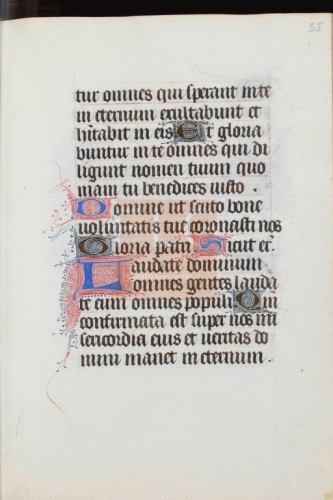 55
tur omnes qui sperant in te
in eternum exultabunt et
hitabit in eis Et gloria
buntur in te omnes qui di
ligunt nomen tuum quo
niam tu benedices iusto .
Domine ut scuto bone
voluntatis tue coronasti nos
Gloria patri Sicut er.
Laudate dominum
omnes gentes lauda
te eum omnes populi Qm
confirmata est super nos mi
sericordia eius et ueritas do
mini manet in eternum .